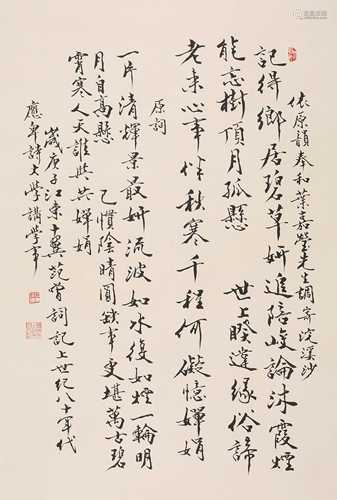 依原韻奉和葉嘉瑩先生調寄浣溪沙
記得鄉居碧草妍追陪峻論沐霞煙
能忘樹頂月孤懸 世上暌違緣俗諦
老來心事伴秋寒千程何礙憶嬋娟
原詞
一片清輝景最妍流波如水復如煙一輪明
月自高懸 已慣陰晴圓缺事更堪萬古碧
霄寒人天誰與共嬋娟
歲庚子江東十翼范曾詞記上世紀八十年代
應卑詩大學講學事